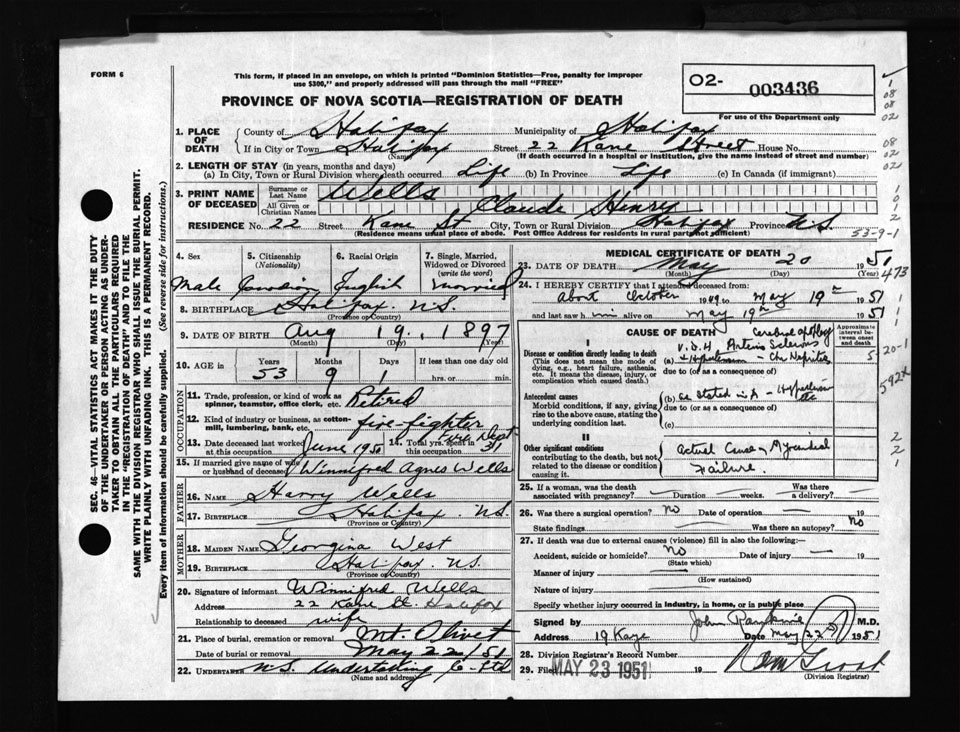 FORM 6
This form, if placed in an envelope, on which is printed "Dominion Statistics—Free, penalty for improper
use $300," and properly addressed will pass through the mail "FREE"
O2- 003436
For use of the Department only
PROVINCE OF NOVA SCOTIA—REGISTRATION OF DEATH
1. PLACE OF DEATH
County of Halifax Municipality of Halifax
If in City or Town Halifax Street 22 Kane Street House No.
(Name) (If death occurred in a hospital or institution, give the name instead of street and number)
2. LENGTH OF STAY (in years, months and days)
(a) In City, Town or Rural Division where death occurred Life (b) In Province Life (c) In Canada (if immigrant)
3. PRINT NAME OF DECEASED
Surname or Last Name Wells
All Given or Christian Names Claude Henry
RESIDENCE No. 22 Street Kane St City, Town or Rural Division Halifax Province N.S.
(Residence means usual place of abode. Post Office Address for residents in rural parts not sufficient)
53-9-1
SEC. 46—VITAL STATISTICS ACT MAKES IT THE DUTY
OF THE UNDERTAKER OR PERSON ACTING AS UNDER-
TAKER TO OBTAIN ALL THE PARTICULARS REQUIRED
IN THE "REGISTRATION OF DEATH" AND TO FILE THE
SAME WITH THE DIVISION REGISTRAR WHO SHALL ISSUE THE BURIAL PERMIT.
WRITE PLAINLY WITH UNFADING INK. THIS IS A PERMANENT RECORD.
Every item of information should be carefully supplied. (See reverse side for instructions.)
4. Sex Male
5. Citizenship (Nationality) Canadian
6. Racial Origin English
7. Single, Married, Widowed or Divorced (write the word) Married
8. BIRTHPLACE Halifax N.S.
(Province or Country)
9. DATE OF BIRTH Aug 19, 1897
(Month) (Day) (Year)
10. AGE Years 53 Months 9 Days 1 If less than one day old
hrs. or min.
OCCUPATION
11. Trade, profession, or kind of work as spinner, teamster, office clerk, etc. Retired
12. Kind of industry or business, as cotton-mill, lumbering, bank, etc. fire-fighter Dept
13. Date deceased last worked at this occupation June 1950 14. Total yrs. spent in this occupation 31
15. If married give name of wife or husband of deceased Winnifred Agnes Wells
FATHER
16. NAME Harry Wells
17. BIRTHPLACE Halifax N.S.
(Province or Country)
MOTHER
18. MAIDEN NAME Georgina West
19. BIRTHPLACE Halifax N.S.
(Province or Country)
20. Signature of informant Winnifred Wells
Address 22 Kane St. Halifax
Relationship to deceased wife
21. Place of burial, cremation or removal Mt. Olivet
Date of burial or removal May 22/51
22. UNDERTAKER N.S. Undertaking Co Ltd
(Name and address)
MEDICAL CERTIFICATE OF DEATH
23. DATE OF DEATH May 20 1951
(Month) (Day) (Year)
24. I HEREBY CERTIFY that I attended deceased from:
About October 1949 to May 19th 1951
and last saw him alive on May 19th 1951
CAUSE OF DEATH
Approximate interval between onset and death
I
Disease or condition directly leading to death
(This does not mean the mode of dying, e.g., heart failure, asthenia, etc. It means the disease, injury, or complication which caused death.)
Cerebral apoplexy
(a) V.D.H Arterio Sclerosis
due to (or as a consequence of)
Antecedent causes
Morbid conditions, if any, giving rise to the above cause, stating the underlying condition last.
(b) as stated in A - Hypertension etc
due to (or as a consequence of)
(c)
II
Other significant conditions
contributing to the death, but not related to the disease or condition causing it.
Actual Cause Myocardial
Failure.
25. If a woman, was the death associated with pregnancy? — Duration — weeks. Was there a delivery? —
26. Was there a surgical operation? No Date of operation — 19
State findings — Was there an autopsy? No
27. If death was due to external causes (violence) fill in also the following:—
Accident, suicide or homicide? No Date of injury — 19
(State which)
Manner of injury
(How sustained)
Nature of injury
Specify whether injury occurred in industry, in home, or in public place
Signed by John M.D.
Address 19 Kaye Date May 22nd 1951
28. Division Registrar's Record Number
29. Filed MAY 23 1951 19
(Division Registrar)